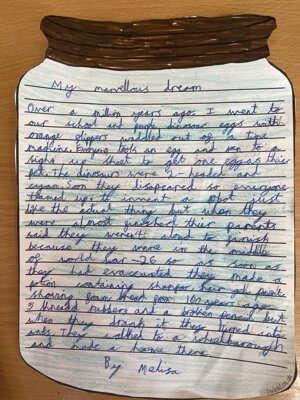 My marvellous dream
Over a million years ago I went to
our school and kept dinosaur eggs with
orange slippers walked out of a time
machine. Everyone took an egg and ran to a
signs up sheet to get one egg as their
pet. The dinosaurs were 2-headed and
cyan. Soon they disapeared so everyone
teamed up to invent a robot just
like the actual thing but when they
were almost finished their parents
said they weren't alowd to finish
because they were in the middle
of world war -76 so as soon as
they had evaxcuated they made a
potion containing shampoo hair gel
bread from 100 years ago
3 thread rubbers and a broken pencil but
when they drank it they turned into
ants. They walked to a
and made a house there.
By Melisa